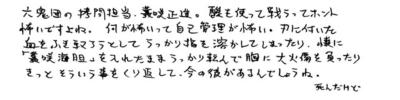 六鬼団の拷問担当、蓑咲正造。酸を使って戦うってホント
怖いですよね。何が怖いって自己管理が怖い。刃に付いた
血をふき取ろうとしてうっかり指を溶かしてしまったり、懐に
「蓑咲海胆」を入れたままうっかり転んで胸に大火傷を負ったり
きっとそういう事をくり返して、今の彼があるんでしょうね。
死んだけど